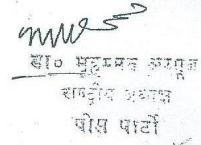 डा० मुहम्मद अय्यूब
राष्ट्रीय अध्यक्ष
पीस पार्टी